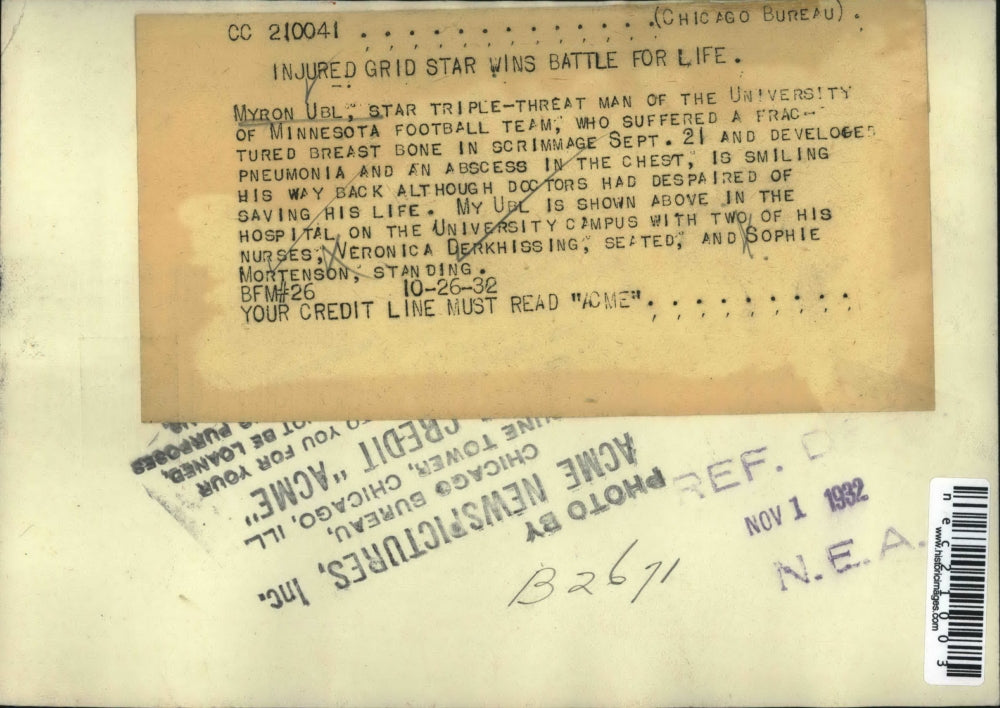 CC 210041 . . . . . . . . . . . . . (CHICAGO BUREAU) .
INJURED GRID STAR WINS BATTLE FOR LIFE.
MYRON UBL, STAR TRIPLE-THREAT MAN OF THE UNIVERSITY
OF MINNESOTA FOOTBALL TEAM, WHO SUFFERED A FRAC-
TURED BREAST BONE IN SCRIMMAGE SEPT. 21 AND DEVELOPED
PNEUMONIA AND AN ABSCESS IN THE CHEST, IS SMILING
HIS WAY BACK ALTHOUGH DOCTORS HAD DESPAIRED OF
SAVING HIS LIFE. MY UBL IS SHOWN ABOVE IN THE
HOSPITAL ON THE UNIVERSITY CAMPUS WITH TWO OF HIS
NURSES, VERONICA DERKHISSING, SEATED, AND SOPHIE
MORTENSON, STANDING.
BFM#26 10-26-32
YOUR CREDIT LINE MUST READ "ACME". . . . . . . . .
PHOTO BY
ACME NEWSPICTURES, Inc.
CHICAGO BUREAU,
TOWER, CHICAGO, ILL
CREDIT "ACME"
TO YOU FOR YOUR
NOT BE LOANED,
PURPOSES
REF. D
NOV 1 1932
N. E. A.
B2671
nec21003
www.historicimages.com